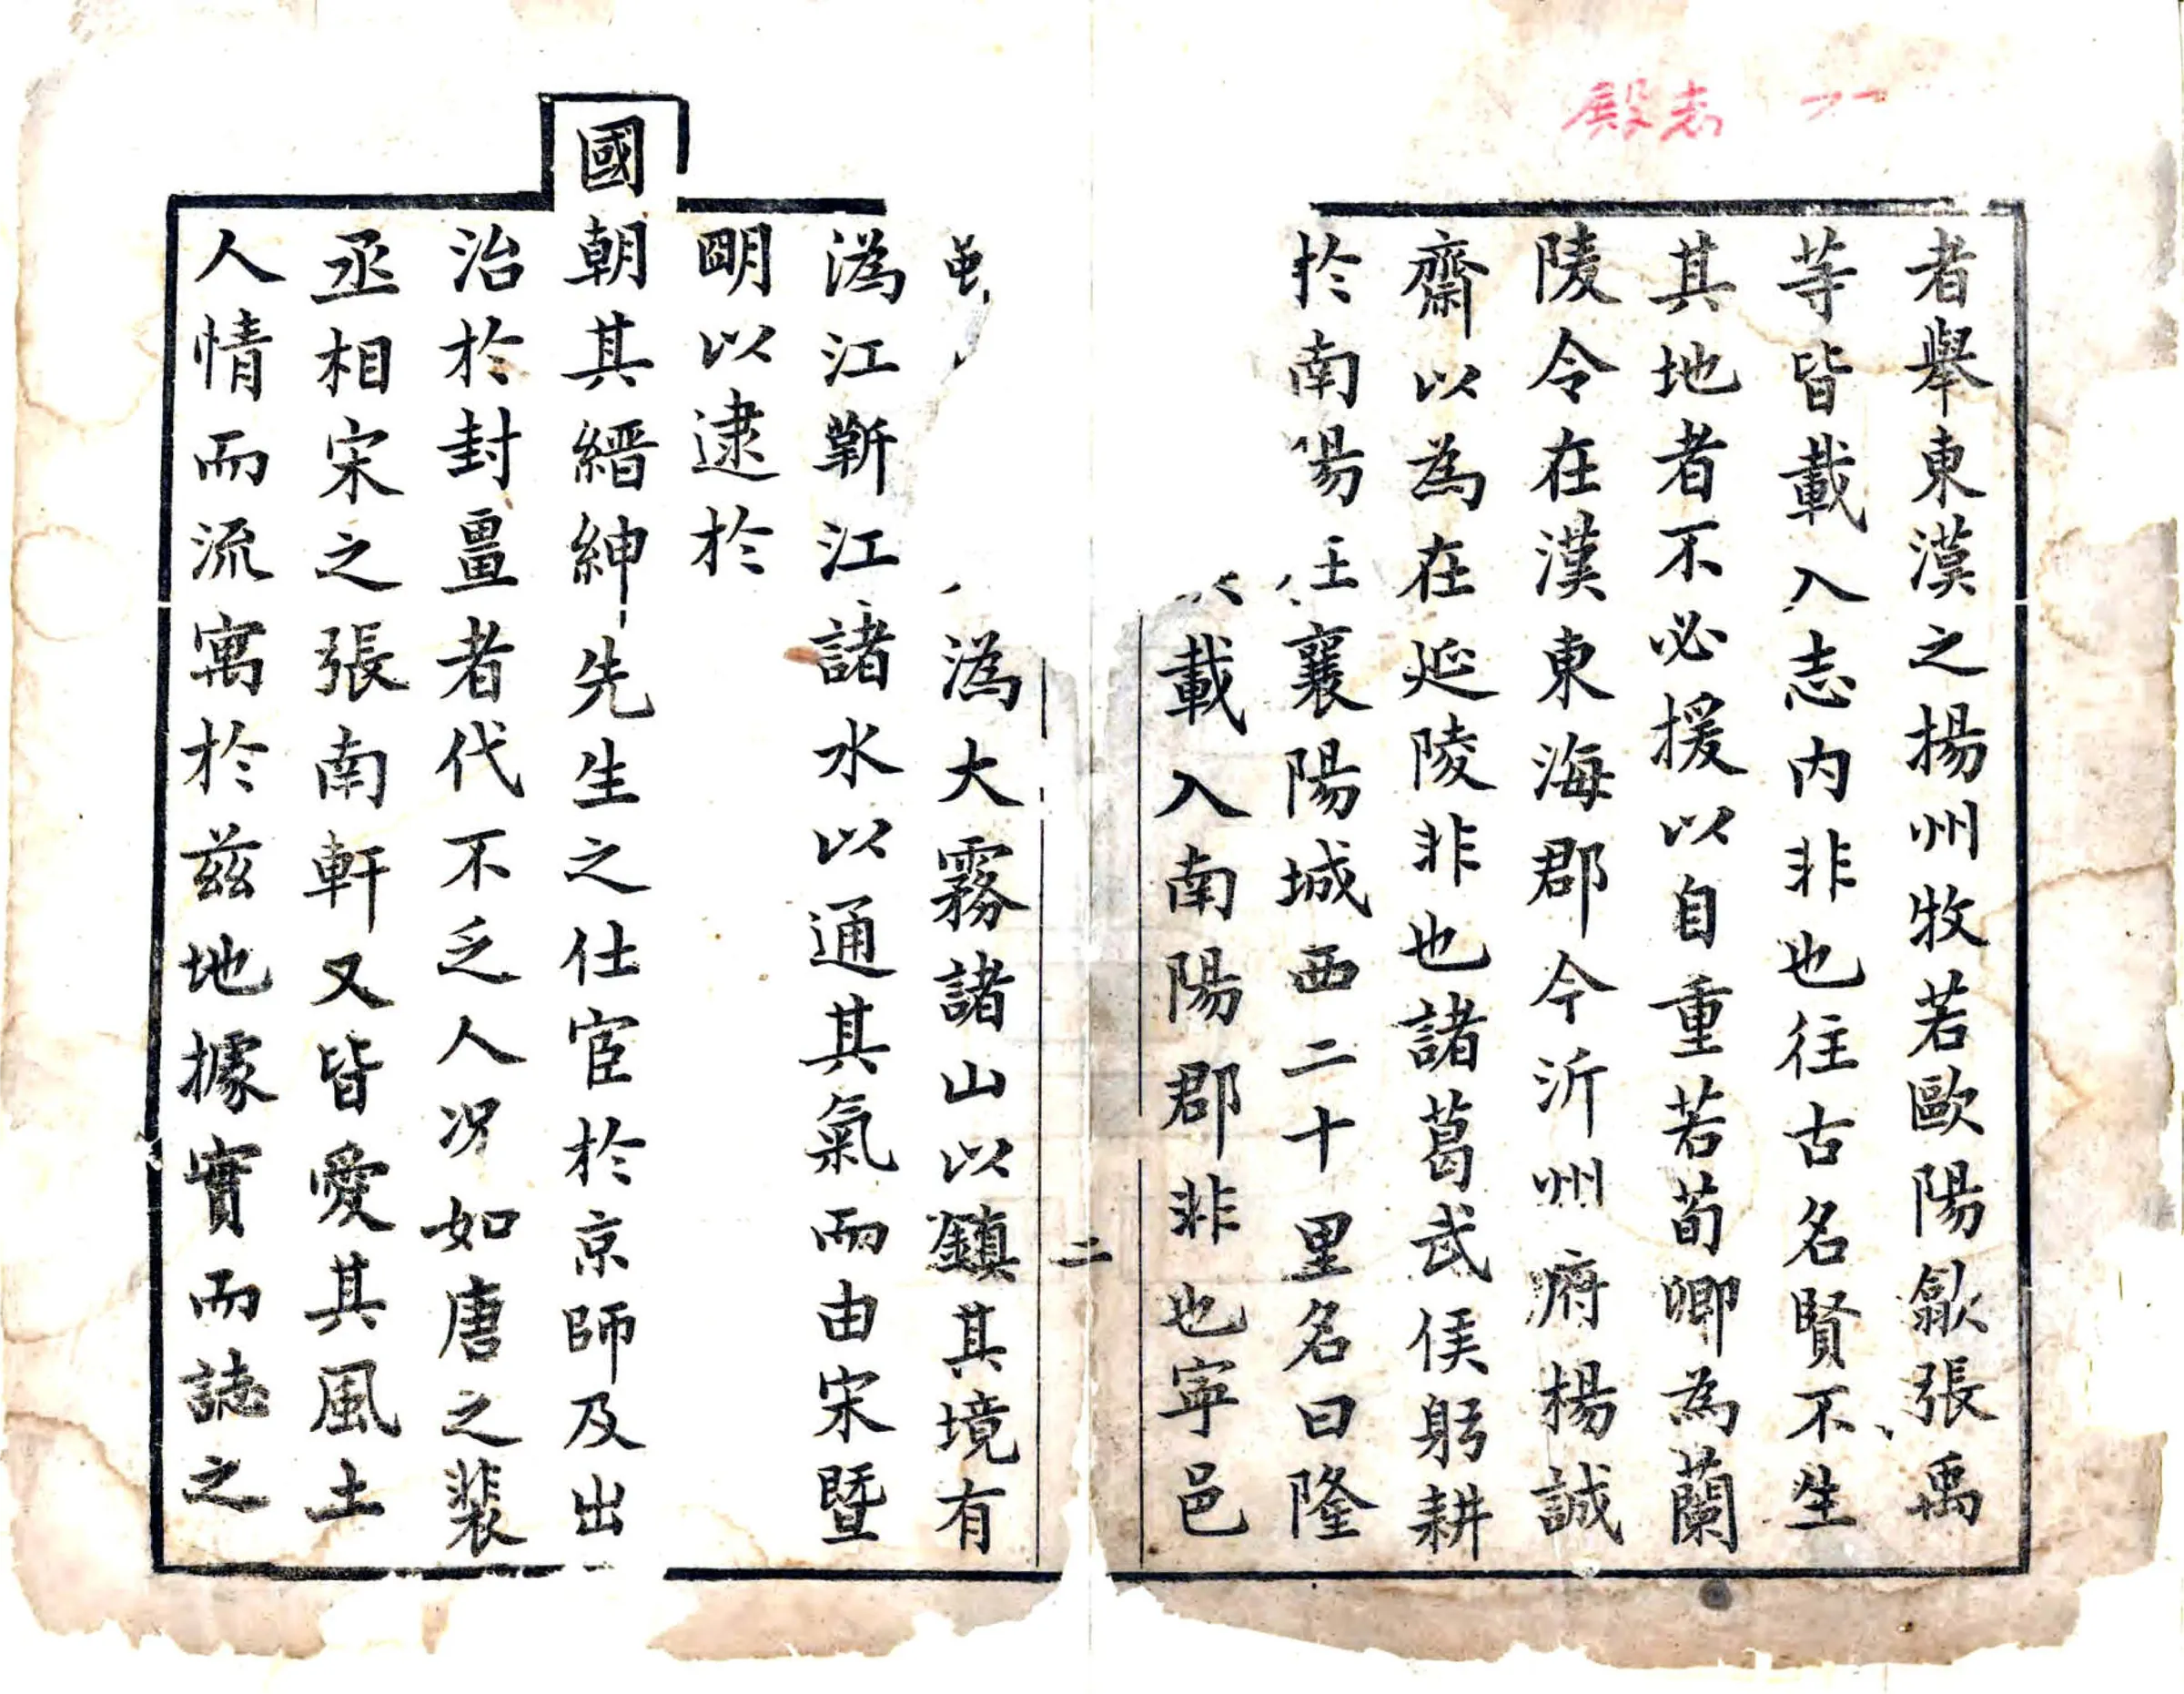 殿志 一
者舉東漢之揚州牧若歐陽歙張禹
等皆載入志内非也往古名賢不生
其地者不必援以自重若荀卿為蘭
陵令在漢東海郡今沂州府楊誠
齋以為在延陵非也諸葛武侯躬耕
於南陽 襄陽城西二十里名曰隆
載入南陽郡非也寜邑
二
雖 溈大霧諸山以鎮其境有
溈江靳江諸水以通其氣而由宋暨
明以逮於
國朝其縉紳先生之仕宦於京師及出
治於封疆者代不乏人况如唐之裴
丞相宋之張南軒又皆愛其風土
人情而流寓於兹地據實而誌之